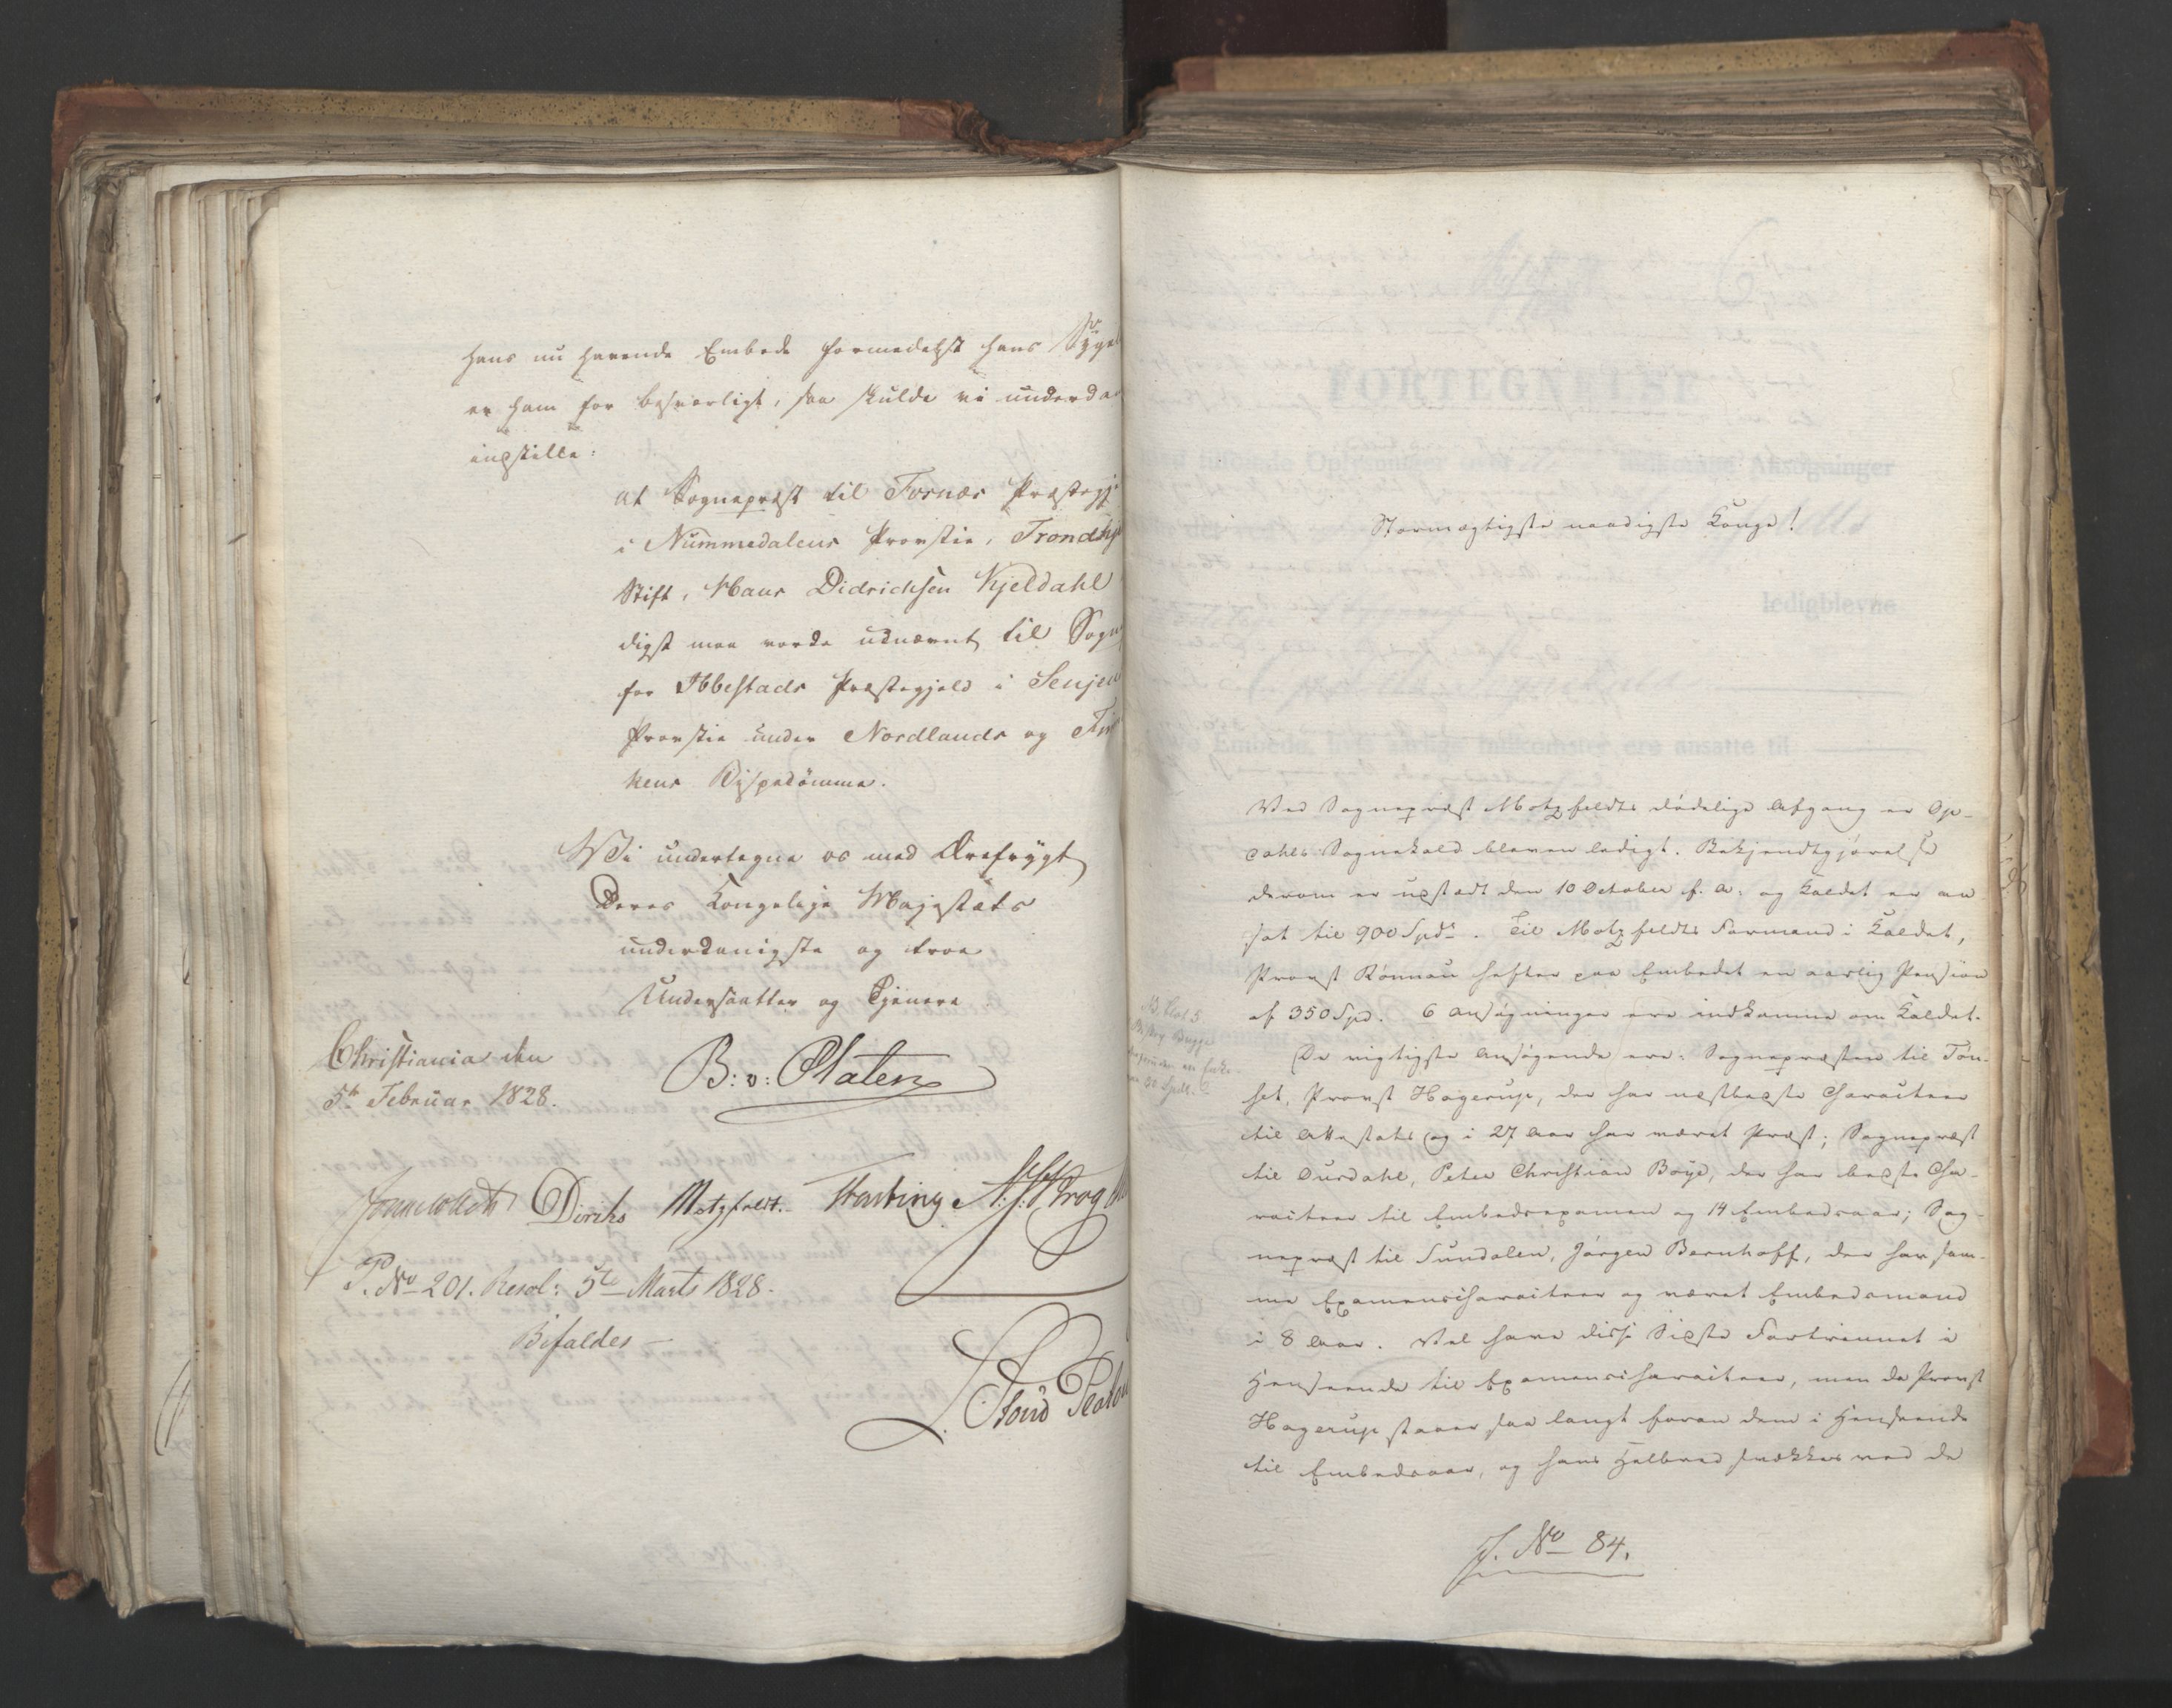 hans nu havende Embede formedelst hans Sygel
er ham for besværligt, saa skulde vi underda
indstille:
at Sognepræst til Fosnæs Præstegj
i Nummedalens Provstie, Trondhj
Stift, Hans Didrichsen Kjeldahl
digst maa vorde udnævnt til Sogn
for Ibbestads Præstegjeld i Senjen
Provstie under Nordlands og Fin
kens Bispedömme.
Vi undertegne os med Ærefrygt
Deres Kongelige Majestæts
underdanigste og troe
Undersaatter og Tjenere
Christiania den
5te Februar 1828.
B: v: Platen
Collett Diriks Motzfeldt. Fasting Krog
P. No 201. Resol: 5te Marts 1828.
Bifaldes
Stormægtigste naadigste Konge!
Ved Sognepræst Motzfeldts dødelige Afgang er Op-
dahls Sognekald bleven ledigt. Bekjendtgjørelse
derom er udstædt den 10 October f. A. og Kaldet er an
sat til 900 Spd. Til Motzfeldts Formand i Kaldet,
Provst Rönnau hefter paa Embedet en aarlig Pension
af 350 Spd. 6 Ansøgninger ere indkomne om Kaldet.
De vigtigste Ansøgende ere: Sognepræsten til Tön-
set, Provst Hagerup, der har næstbedste Characteer
til Attestats og i 27 Aar har været Præst; Sognepræst
til Ourdahl, Peter Christian Böye, der har bedste Cha-
racteer til Embedsexamen og 14 Embedsaar; Sog-
nepræst til Sundalen, Jörgen Bernhoff, der har sam-
me Examenscharacteer og været Embedsmand
i 8 Aar. Vel have disse Sidste Fortrinnet i
Henseende til Examenscharacteer, men da Provst
Hagerup staaer saa langt foran dem i Henseende
til Embedsaar, og hans Helbred svækkes ved de
J. No 84.